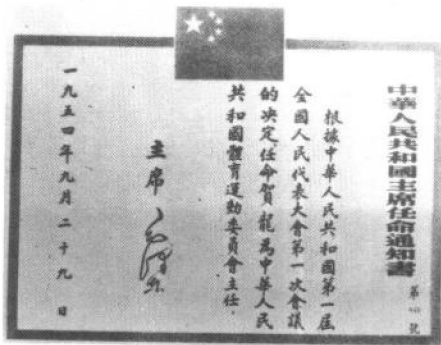 中華人民共和國主席任命通知書
第 號
根據中華人民共和國第一屆
全國人民代表大會第一次會議
的決定任命賀龍為中華人民
共和國體育運動委員會主任.
主席
一九五四年九月二十九日